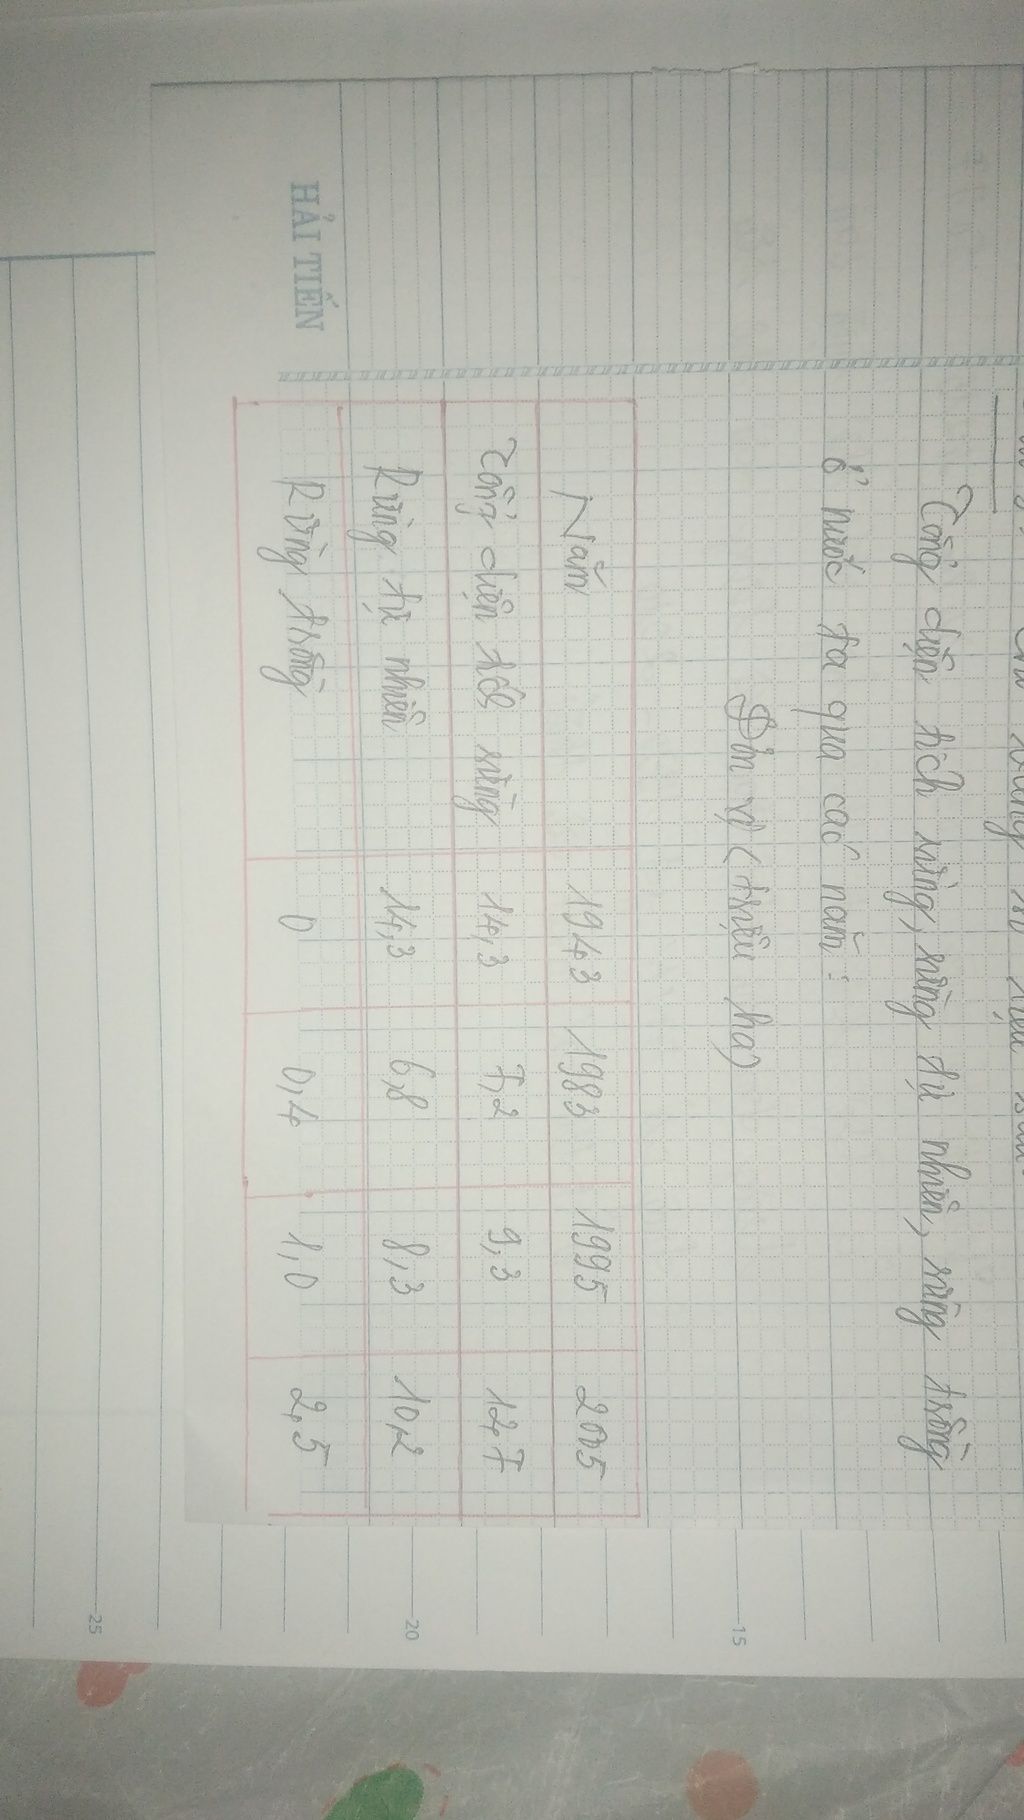 Tổng diện tích rừng, rừng tự nhiên, rừng trồng
ở nước ta qua các năm:
Đơn vị (triệu ha)
Năm 1943 1983 1995 2005
Tổng diện tích rừng 14,3 7,2 9,3 12,7
Rừng tự nhiên 14,3 6,8 8,3 10,2
Rừng trồng 0 0,4 1,0 2,5
HẢI TIẾN
15
20
25